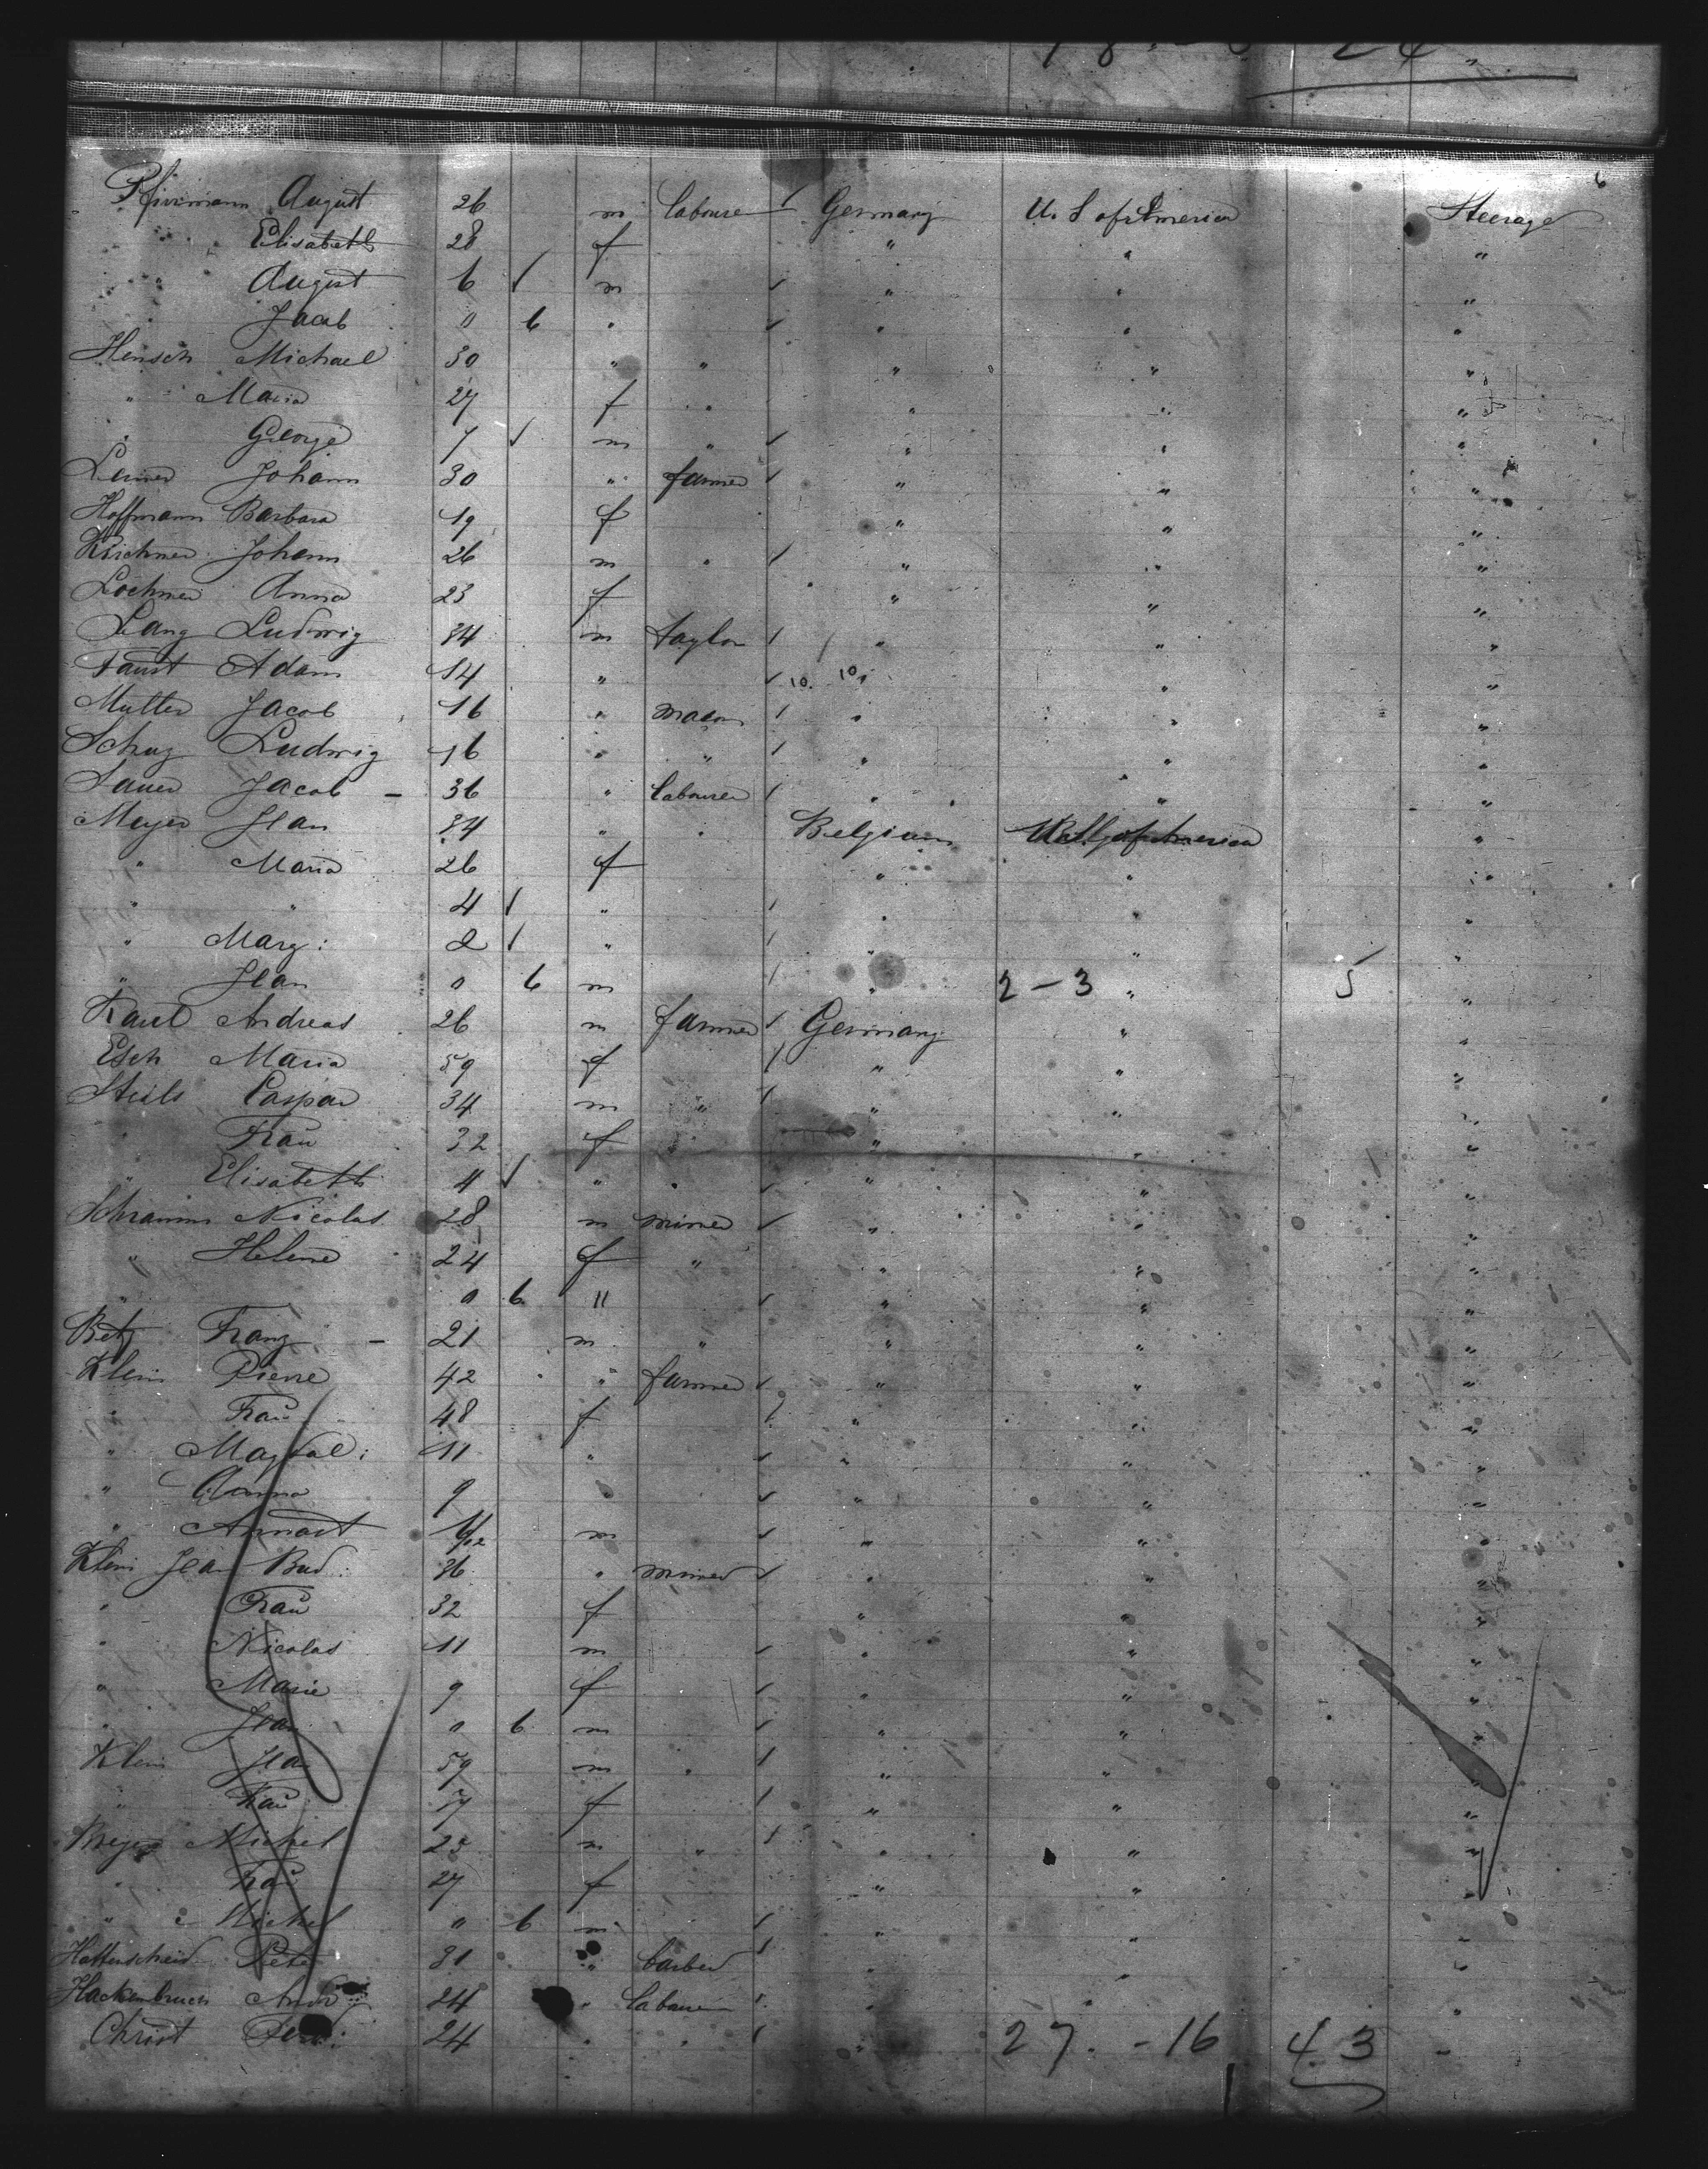 6
August 26 m labourer Germany U. S of America Steerage
" Elisabeth 28 f " " "
" August 6 m " " "
" Jacob 0 6 " " " "
Hensch Michael 30 " " " " "
" Maria 27 f " " " "
" George 7 m " " " "
Johann 30 " farmer " " "
Hoffmann Barbara 19 f " " "
Kirchner Johann 26 m " " " "
Lochner Anna 23 f " " "
Lang Ludwig 34 m taylor " " "
Faust Adam 14 " 10. 10 " "
Muller Jacob 16 " mason " " "
Schuz Ludwig 16 " " " " "
Sauer Jacob - 36 " labourer " " "
Meyer Jean 34 " " Belgium U. S. of America "
" Maria 26 f " " "
" " 4 " " " "
" Marg: 2 " " " "
" Jean 0 6 m " 2 - 3 " 5 "
Kaul Andreas 26 m farmer Germany " "
Esch Maria 59 f " " "
Caspar 34 m " " " "
" Frau 32 f " " " "
" Elisabeth 4 " " " " "
Schramm Nicolas 28 m miner " " "
" Helene 24 f " " " "
" 0 6 " " " "
Betz Franz - 21 m " " " "
Klein Pierre 42 " farmer " " "
" Frau 48 f " " "
" Magdal: 11 " " " "
" Anna 9 " " " "
" m " " "
Klein Jean 36 " miner " " "
" Frau 32 f " " "
" Nicolas 11 m " " "
" Marie 9 f " " "
" Jean 0 6 m " " "
Klein Jean 59 m " " " "
" Frau 57 f " " "
Meyer Michel 25 m " " " "
" Frau 27 f " " "
" Michel 0 6 m " " "
Hattenscheid Peter 31 " barber " " "
Hackenbruch 24 " labourer " " "
Christ 24 " " " 27. - 16 43 "